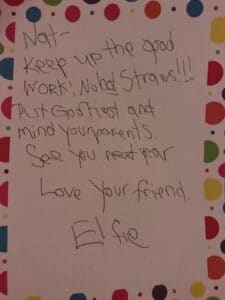 Nat-
Keep up the good
Work! Straws!!!
Put God First and
mind your parents.
See you next year
Love Your friend,
Elfie